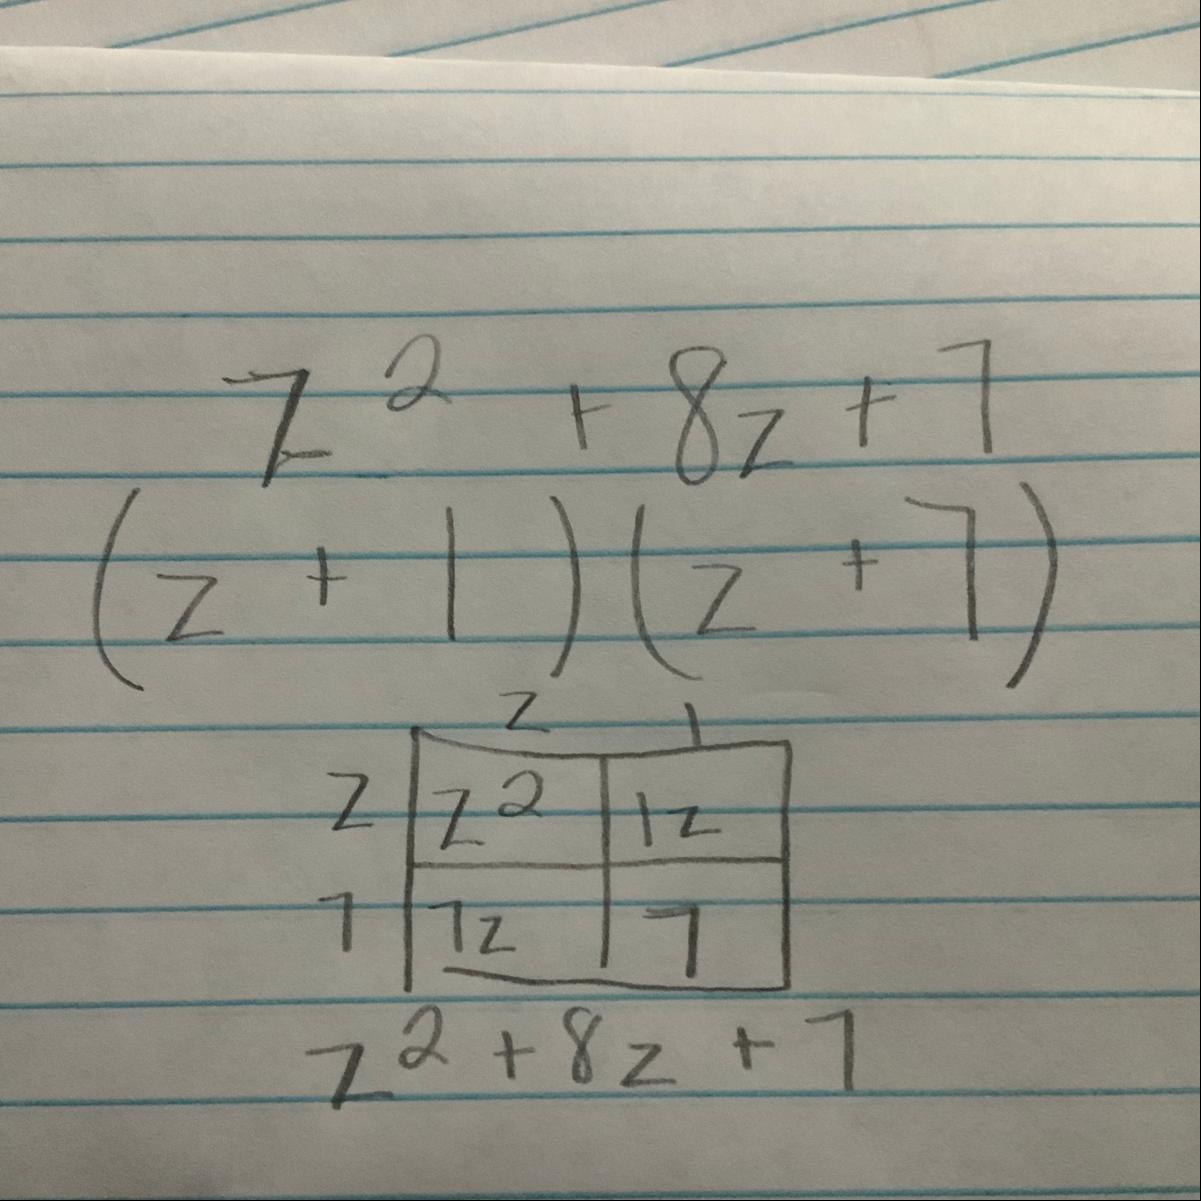 z² + 8z + 7
(z + 1)(z + 7)
z 1
z z² 1z
7 7z 7
z² + 8z + 7